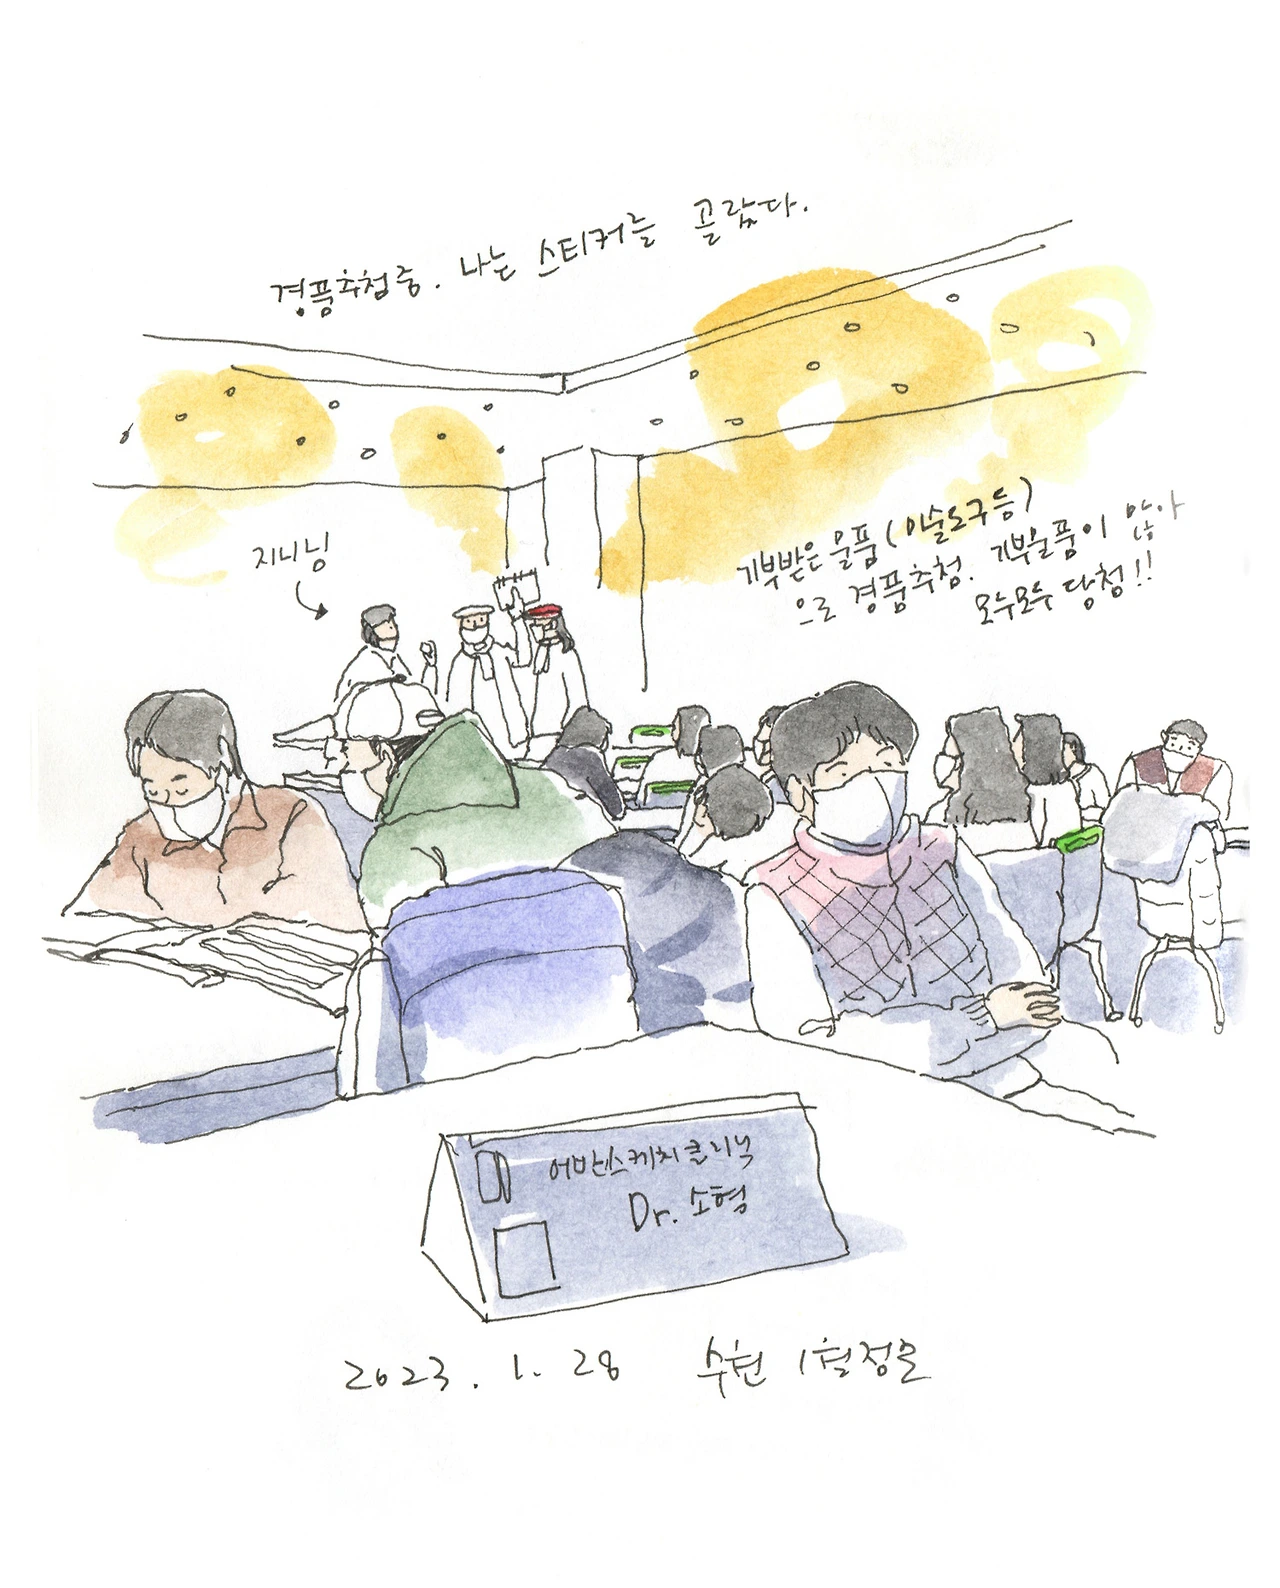 경품추첨중. 나는 스티커를 골랐다.
지니님
기부받은 물품(미술도구등)
으로 경품추첨. 기부물품이 많아
모두모두 당첨!!
어반스케치클리닉
Dr. 소형
2023. 1. 28 수현 1월정모